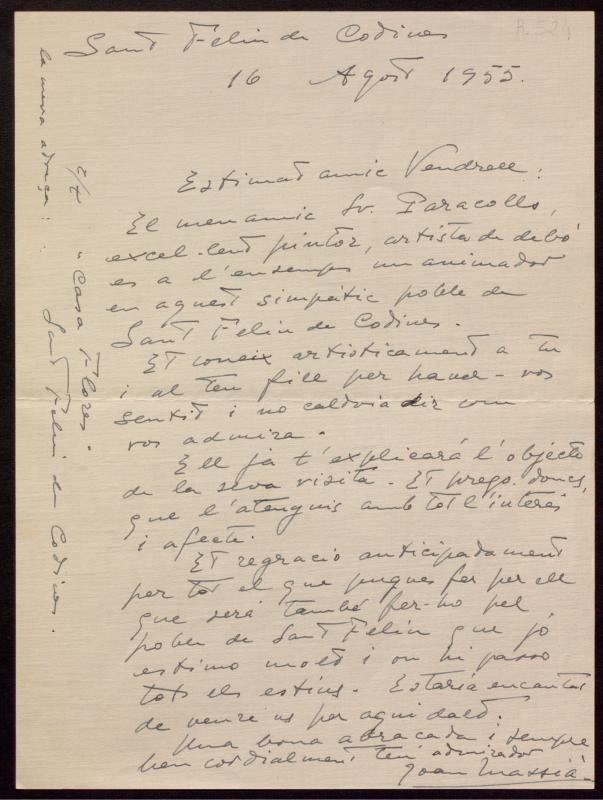 R. 524
Sant Feliu de Codines
16 Agost 1955.
Estimat amic Vendrell:
El meu amic Sr. Paracolls,
excel·lent pintor, artista de debò
es a l'ensemps un animador
en aquest simpàtic poble de
Sant Feliu de Codines.
Et coneix artisticament a tu
i al teu fill per haver-vos
sentit i no caldria dir com
vos admira.
Ell ja t'explicará l'objecte
de la seva visita. Et prego, doncs,
que l'atenguis amb tot l'interès
i afecte.
Et regracio anticipadament
per tot el que pugues fer per ell
que será també fer-ho pel
poble de Sant Feliu que jo
estimo molt i on hi passo
tots els estius. Estaria encantat
de veure us per aqui dalt.
Una bona abraçada i sempre
ben cordialment teu admirador
Joan Massià
la meva adreça:
"Casa Flores"
Sant Feliu de Codines.